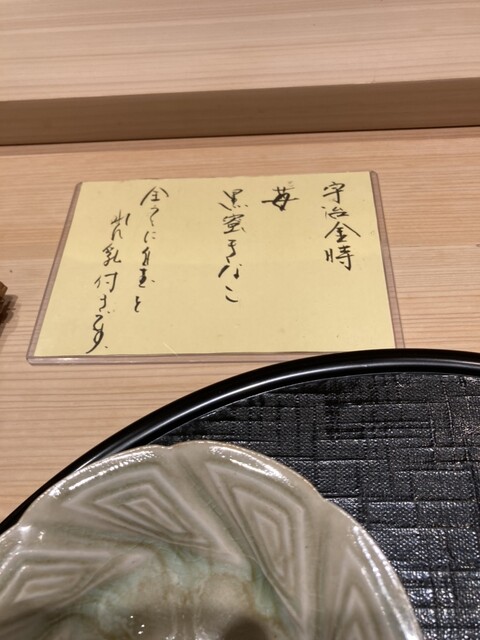 宇治金時
苺
黒蜜きなこ
全てに白玉と
練乳付きます。